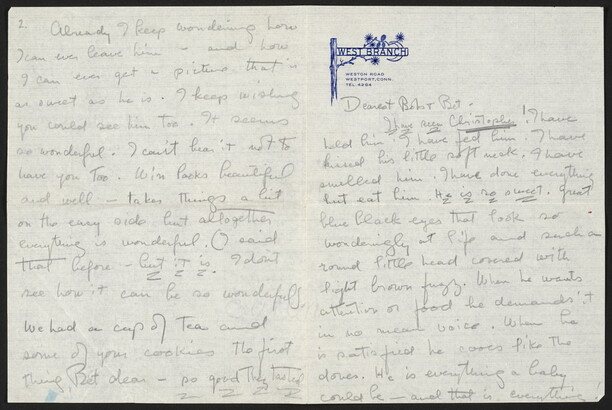 WEST BRANCH
WESTON ROAD
WESTPORT, CONN.
TEL. 4264
Dearest Bobs & Bet -
I have seen Christopher! I have
held him. I have fed him. I have
kissed his little soft neck. I have
smelled him. I have done everything
but eat him. He is so sweet. Great
blue black eyes that look so
wonderingly at life and such a
round little head covered with
light brown fuzz. When he wants
attention or food he demands it
in no mean voice. When he
is satisfied he cooes like the
doves. He is everything a baby
could be - and that is everything!
2.
Already I keep wondering how
I can ever leave him - and how
I can ever get a picture that is
as sweet as he is. I keep wishing
you could see him too. It seems
so wonderful. I can't bear it not to
have you too. Win looks beautiful
and well - takes things a bit
on the easy side but altogether
everything is wonderful. O said
that before - but it is. I don't
see how it can be so wonderful.
We had a cup of Tea and
some of your cookies the first
thing Bet dear - so good they tasted